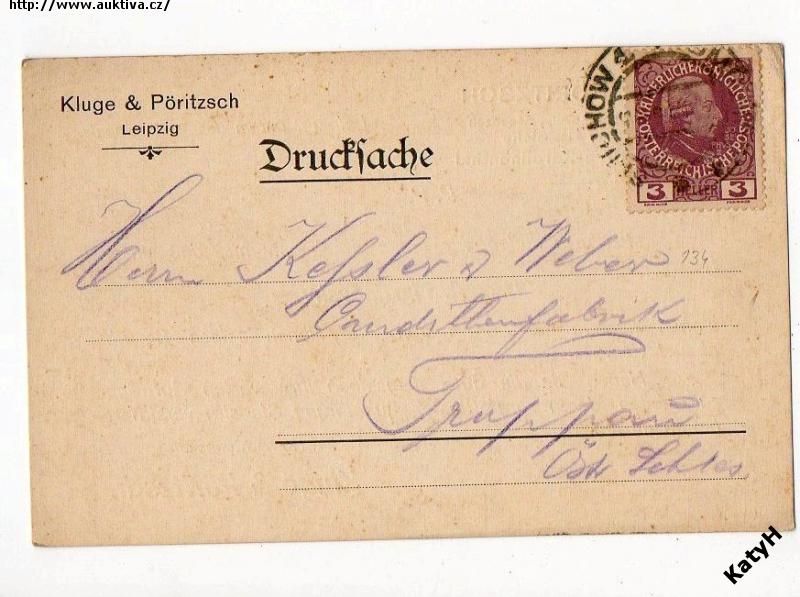 http://www.auktiva.cz/
Kluge & Pöritzsch
Leipzig
Drucksache
KAISERLICHE KÖNIGLICHE
ÖSTERREICHISCHE POST
3 HELLER 3
Herrn Kessler & Weber
134
Conditenfabrik
Troppau
Östr Schles
KatyH